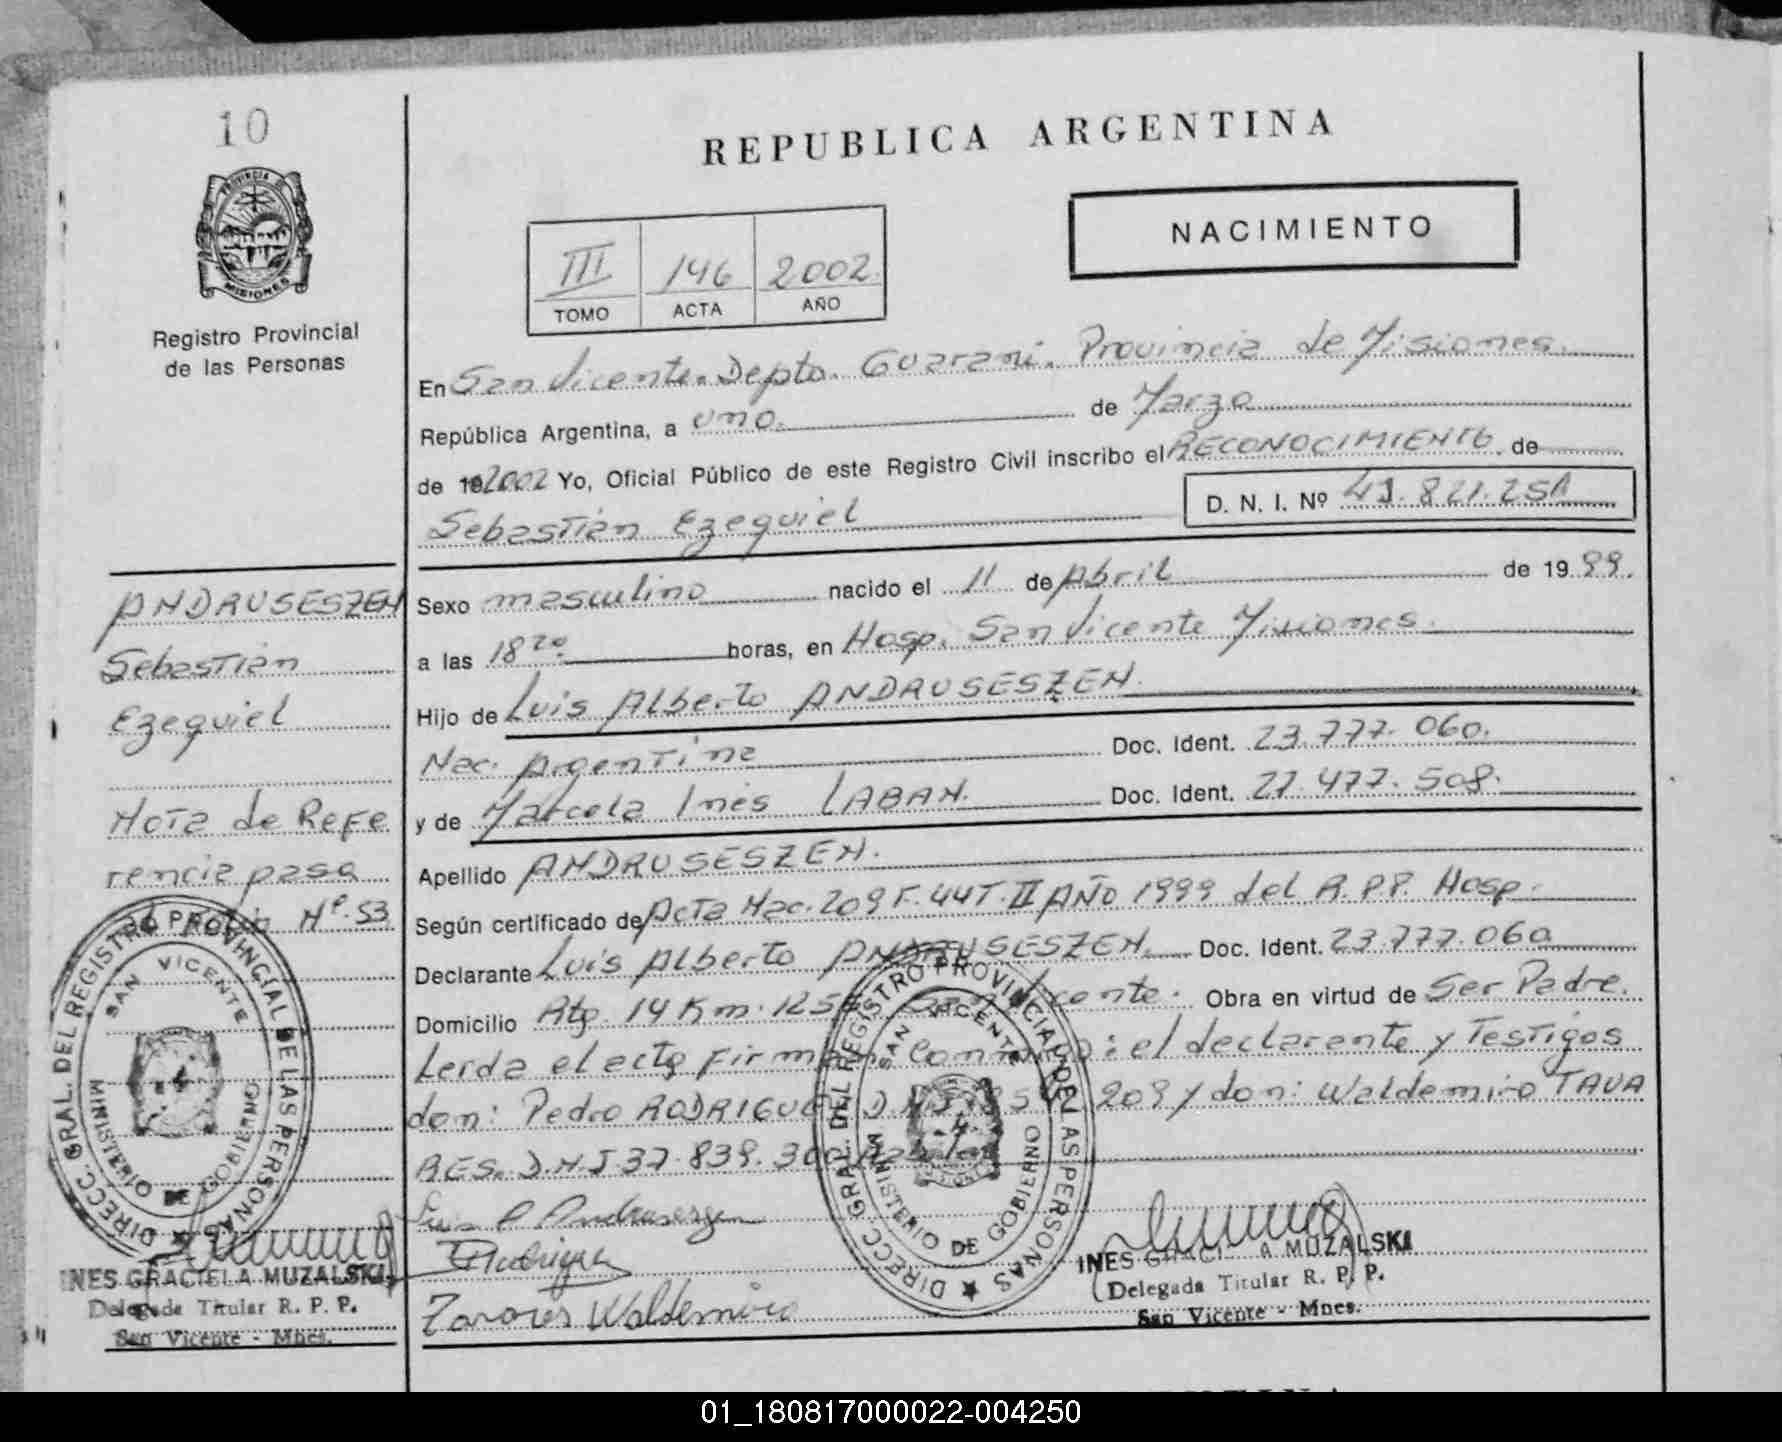 10
PROVINCIA DE
MISIONES
Registro Provincial
de las Personas
REPUBLICA ARGENTINA
III 146 2002
TOMO ACTA AÑO
NACIMIENTO
En San Vicente. Depto. Guarani. Provincia de Misiones.
República Argentina, a uno. de Marzo
de 192002 Yo, Oficial Público de este Registro Civil inscribo el RECONOCIMIENTO de
Sebastián Ezequiel D. N. I. Nº 41.821.251
Sexo masculino nacido el 11 de Abril de 19 99.
a las 18 20 horas, en Hosp. San Vicente Misiones.
Hijo de Luis Alberto ANDRUSESZEN.
Nac. Argentina Doc. Ident. 23.777.060.
y de Marcela Inés LABAN. Doc. Ident. 27.477.508.
Apellido ANDRUSESZEN.
Según certificado de Acta Nac. 209 F. 44 T. II AÑO 1999 del R.P.P. Hosp.
Declarante Luis Alberto ANDRUSESZEN. Doc. Ident. 23.777.060
Domicilio Rta. 14 Km. San Vicente. Obra en virtud de Ser Padre.
Leida el acta Firman Conmigo: el declarante y Testigos
don: Pedro RODRIGUEZ D.N.I. 209 y don: Waldemiro TAVA
RES. D.N.I 37.839.
Luis A Andruseszen
Rodriguez
Tavares Waldemiro
INES GRACIELA MUZALSKI
Delegada Titular R. P. P.
San Vicente - Mnes.
ANDRUSESZEN
Sebastián
Ezequiel
Nota de Refe
rencia pasa
Nº. 53
DIRECC. GRAL. DEL REGISTRO PROVINCIAL DE LAS PERSONAS
SAN VICENTE
MINISTERIO DE GOBIERNO
INES GRACIELA MUZALSKI
Delegada Titular R. P. P.
San Vicente - Mnes.
DIRECC. GRAL. DEL REGISTRO PROVINCIAL DE LAS PERSONAS
SAN VICENTE
MINISTERIO DE GOBIERNO
01_180817000022-004250